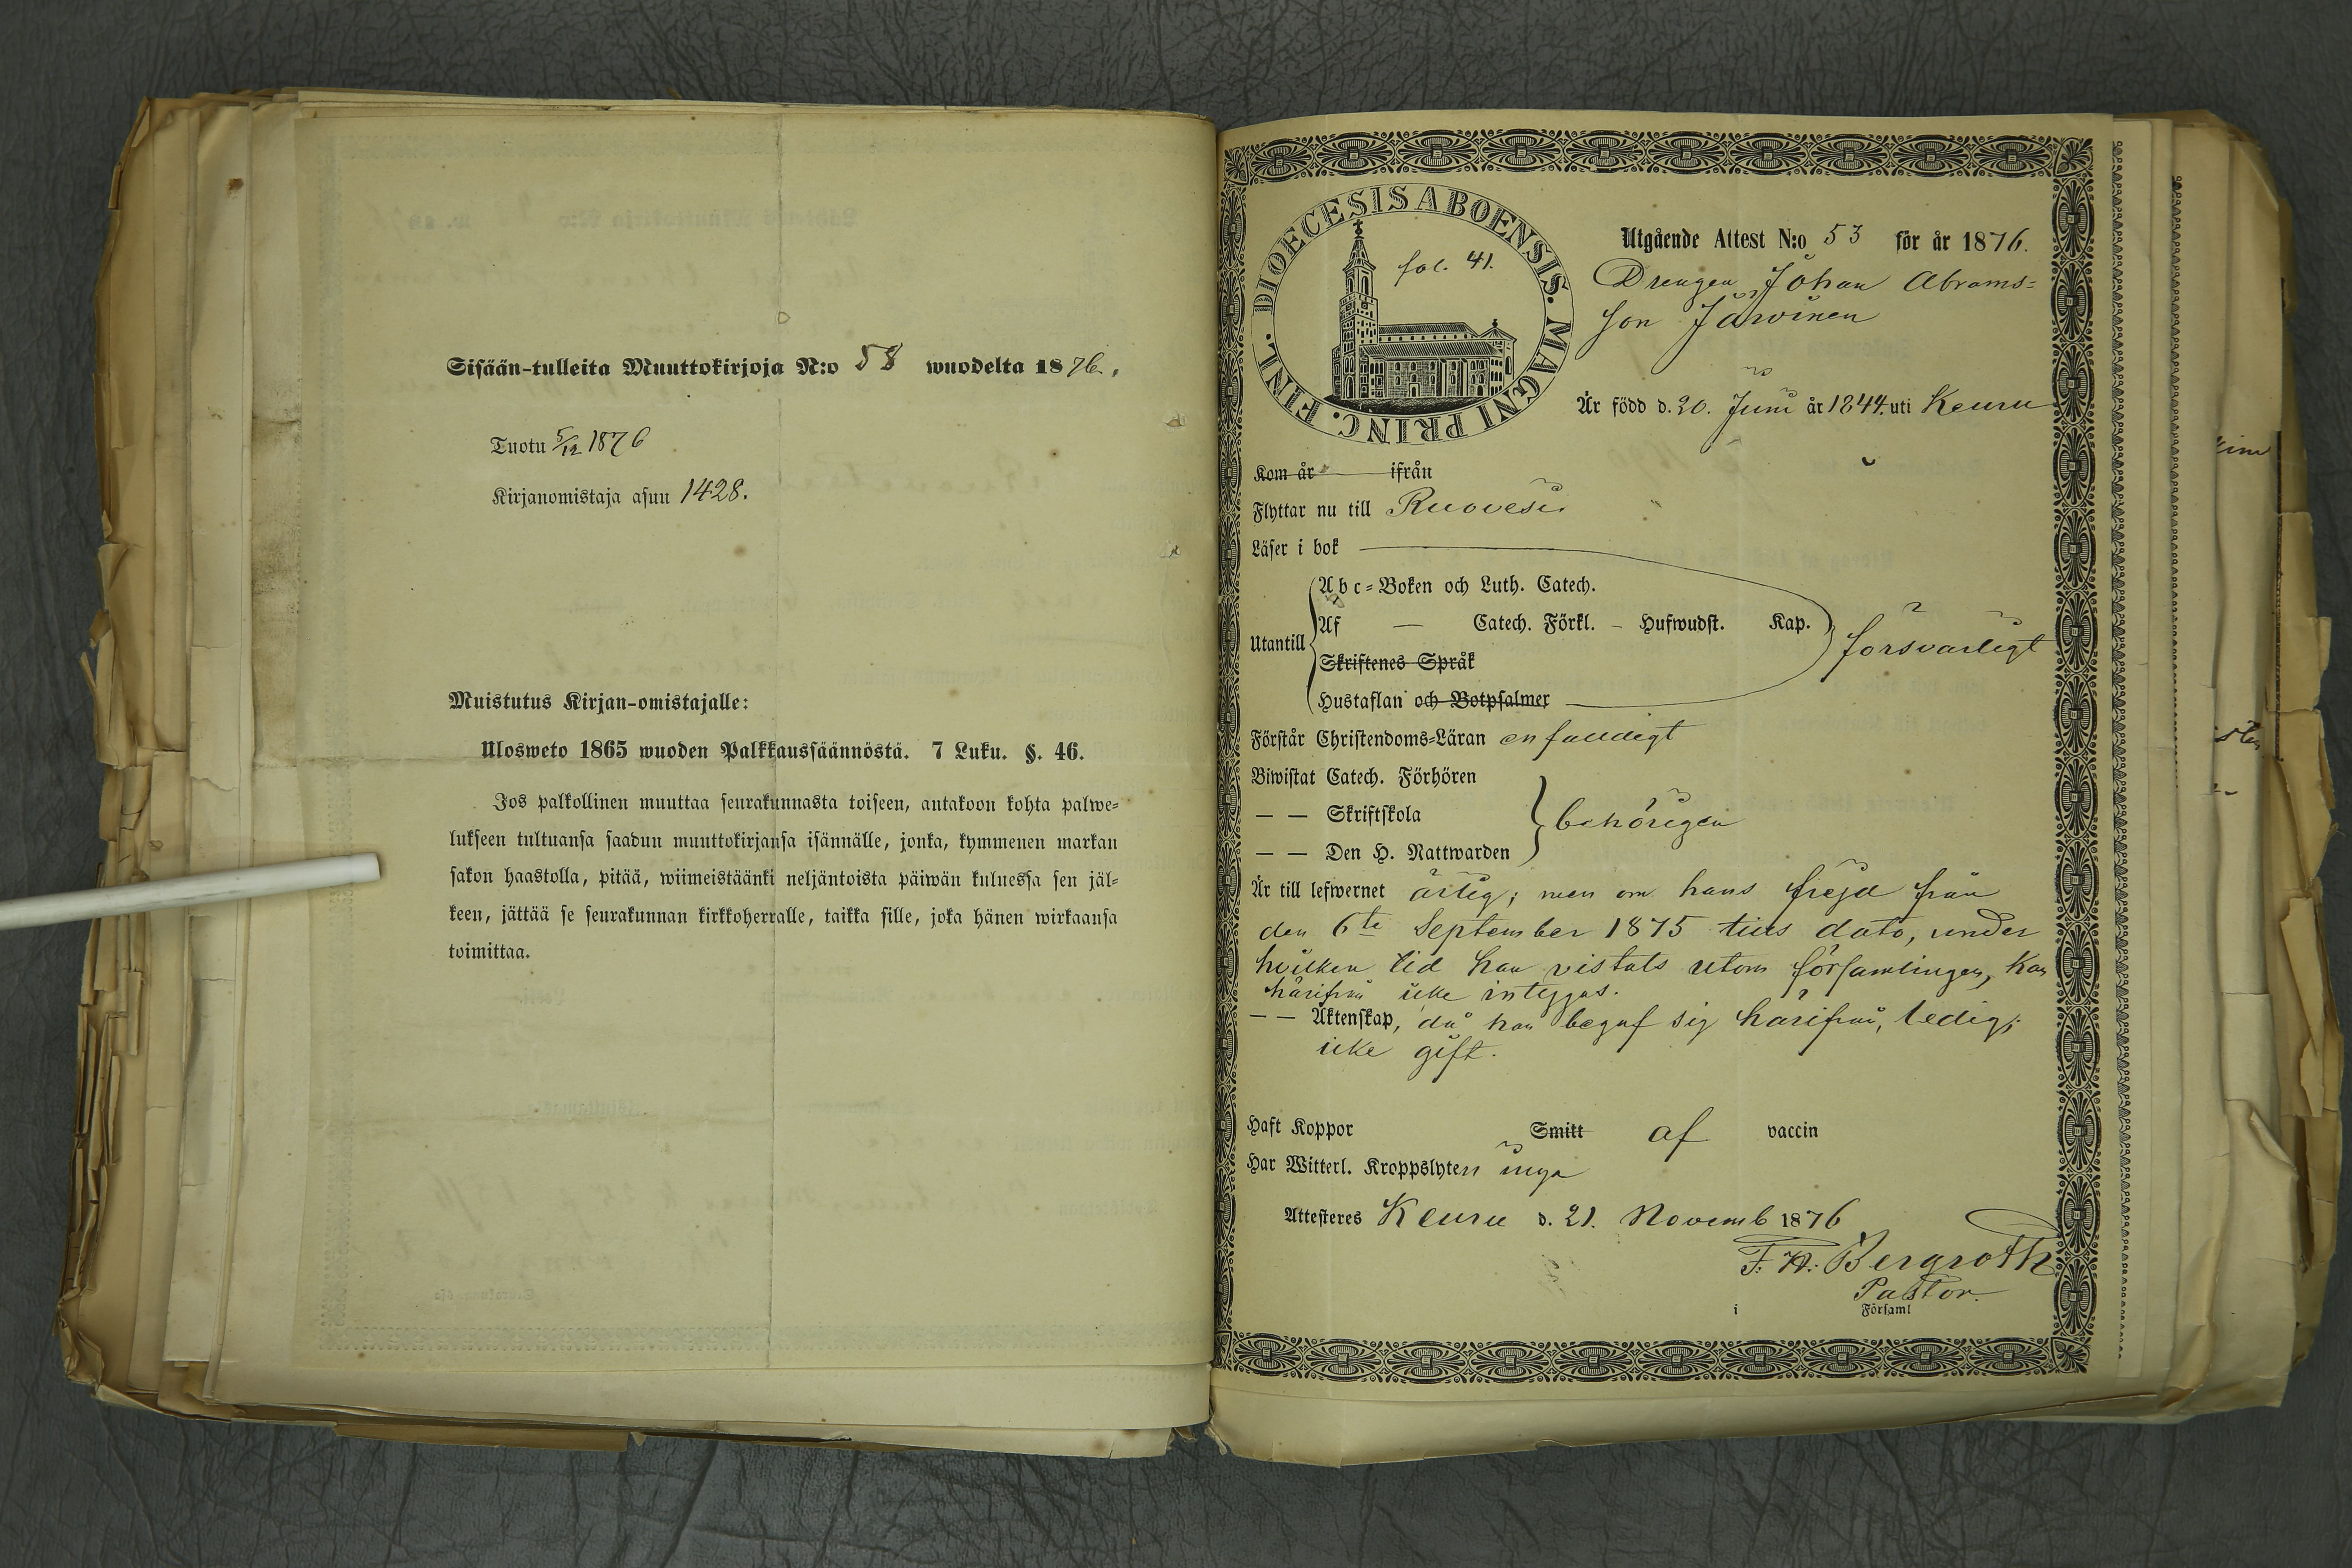 Sisään-tulleita Muuttokirjoja N:o 58 wuodelta 1876.
Tuotu 5/12 1876
Kirjanomistaja asuu 1428.
Muistutus Kirjan-omistajalle:
Ulosweto 1865 wuoden Palkkaussäännöstä. 7 Luku. §. 46.
Jos palkollinen muuttaa seurakunnasta toiseen, antakoon kohta palwe-
lukseen tultuansa saadun muuttokirjansa isännälle, jonka, kymmenen markan
sakon haastolla, pitää, wiimeistäänki neljäntoista päiwän kuluessa sen jäl-
keen, jättää se seurakunnan kirkkoherralle, taikka sille, joka hänen wirkaansa
toimittaa.
DIOECESIS ABOENSIS. MAGNI PRINC. FINL.
fol. 41.
Utgående Attest N:o 53 för år 1876.
Drengen Johan Abrams-
son Järvinen
Är född d. 20. Juni år 1844. uti Keuru
Kom år ifrån
Flyttar nu till Ruovesi
Läser i bok
Utantill
Abc-Boken och Luth. Catech.
Af — Catech. Förkl. – Hufwudst. Kap.
Skriftenes Språk
Hustaflan och Botpsalmer
försvarligt
Förstår Christendoms-Läran enfaldigt
Biwistat Catech. Förhören
— — Skriftskola
— — Den H. Nattwarden
behörigen
Är till lefwernet ärlig; men om hans frejd från
den 6te September 1875 tills dato, under
hvilken tid han vistats utom församlingen, kan
härifrån icke intygas.
— — Äktenskap, då han begaf sig härifrån, ledig;
icke gift.
Haft Koppor Smitt af vaccin
Har Witterl. Kroppslyten inga
Attesteres Keuru d. 21. Novemb 1876
F. H. Bergroth
Pastor.
i Församl